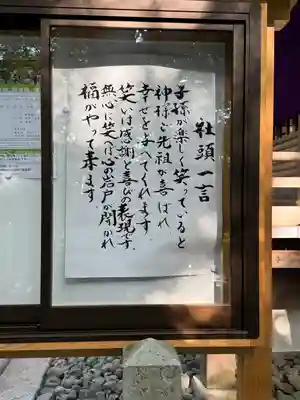 社頭一言
子孫が楽しく笑っていると
神様と先祖が喜ばれ
幸せを与へてくれます
笑いは感謝と喜びの表現です
無心に笑へば心の岩戸が開かれ
福がやって来ます。